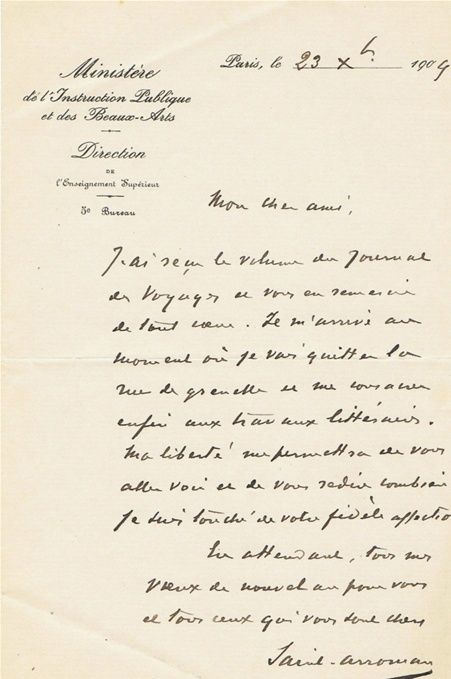 Ministère
de l'Instruction Publique
et des Beaux-Arts
Direction
DE
l'Enseignement Supérieur
5e Bureau
Paris, le 23 Xb 1909
Mon cher ami,
J'ai reçu le volume du Journal
des Voyages et vous en remercie
de tout cœur. Il m'arrive au
moment où je vais quitter la
rue de grenelle et me consacrer
enfin aux travaux littéraires.
Ma liberté me permettra de vous
aller voir et de vous redire combien
je suis touché de votre fidèle affection
En attendant, tous mes
vœux de nouvel an pour vous
et tous ceux qui vous sont chers
Saint-Arroman